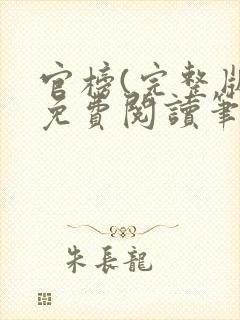 官榜(完整版
免費閱讀筆
朱長龍